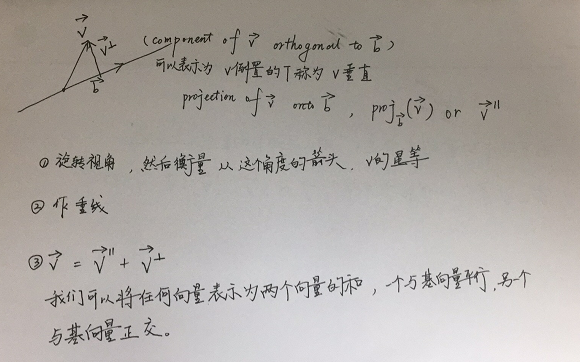 v⃗
v⃗⊥
b⃗
(component of v⃗ orthogonal to b⃗)
可以表示为 v倒置的T称为v垂直
projection of v⃗ onto b⃗, proj_b⃗(v⃗) or v⃗∥
① 旋转视角,然后衡量从这个角度的箭头,v的量等
② 作垂线
③ v⃗ = v⃗∥ + v⃗⊥
我们可以将任何向量表示为两个向量的和,一个与基向量平行,另一个
与基向量正交。